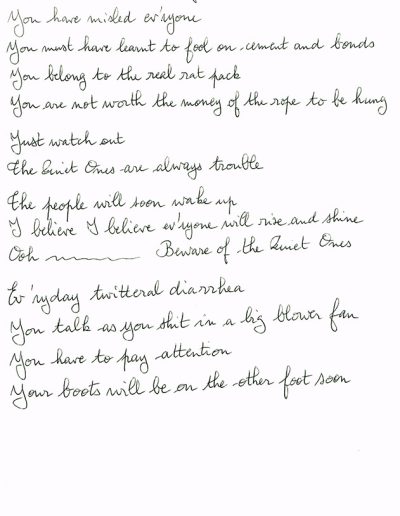 You have misled ev'ryone
You must have learnt to fool on cement and bonds
You belong to the real rat pack
You are not worth the money of the rope to be hung
Just watch out
The Quiet Ones are always trouble
The people will soon wake up
I believe I believe ev'ryone will rise and shine
Ooh Beware of the Quiet Ones
Ev'ryday twitteral diarrhea
You talk as you shit in a big blower fan
You have to pay attention
Your boots will be on the other foot soon